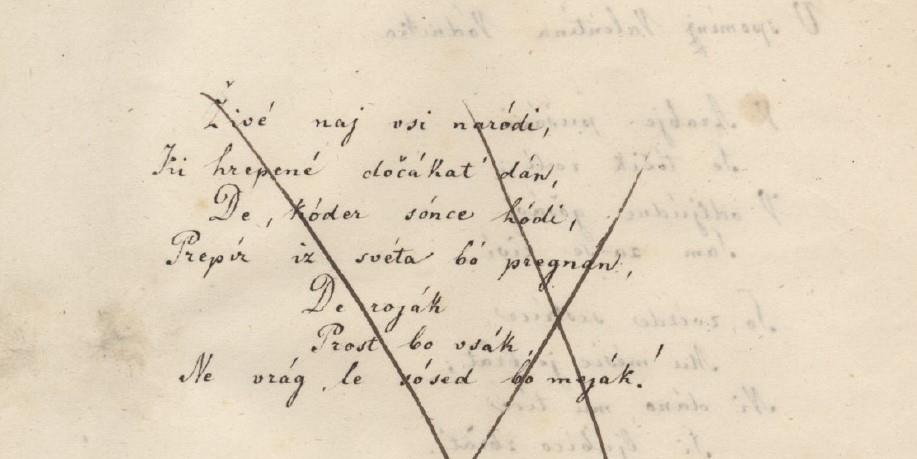 Živé naj vsi naródi,
Ki hrepené dočákat' dán,
De, kóder sónce hódi,
Prepír iz svéta bó pregnán,
De roják
Prost bo vsák,
Ne vrág, le sósed bo meják!